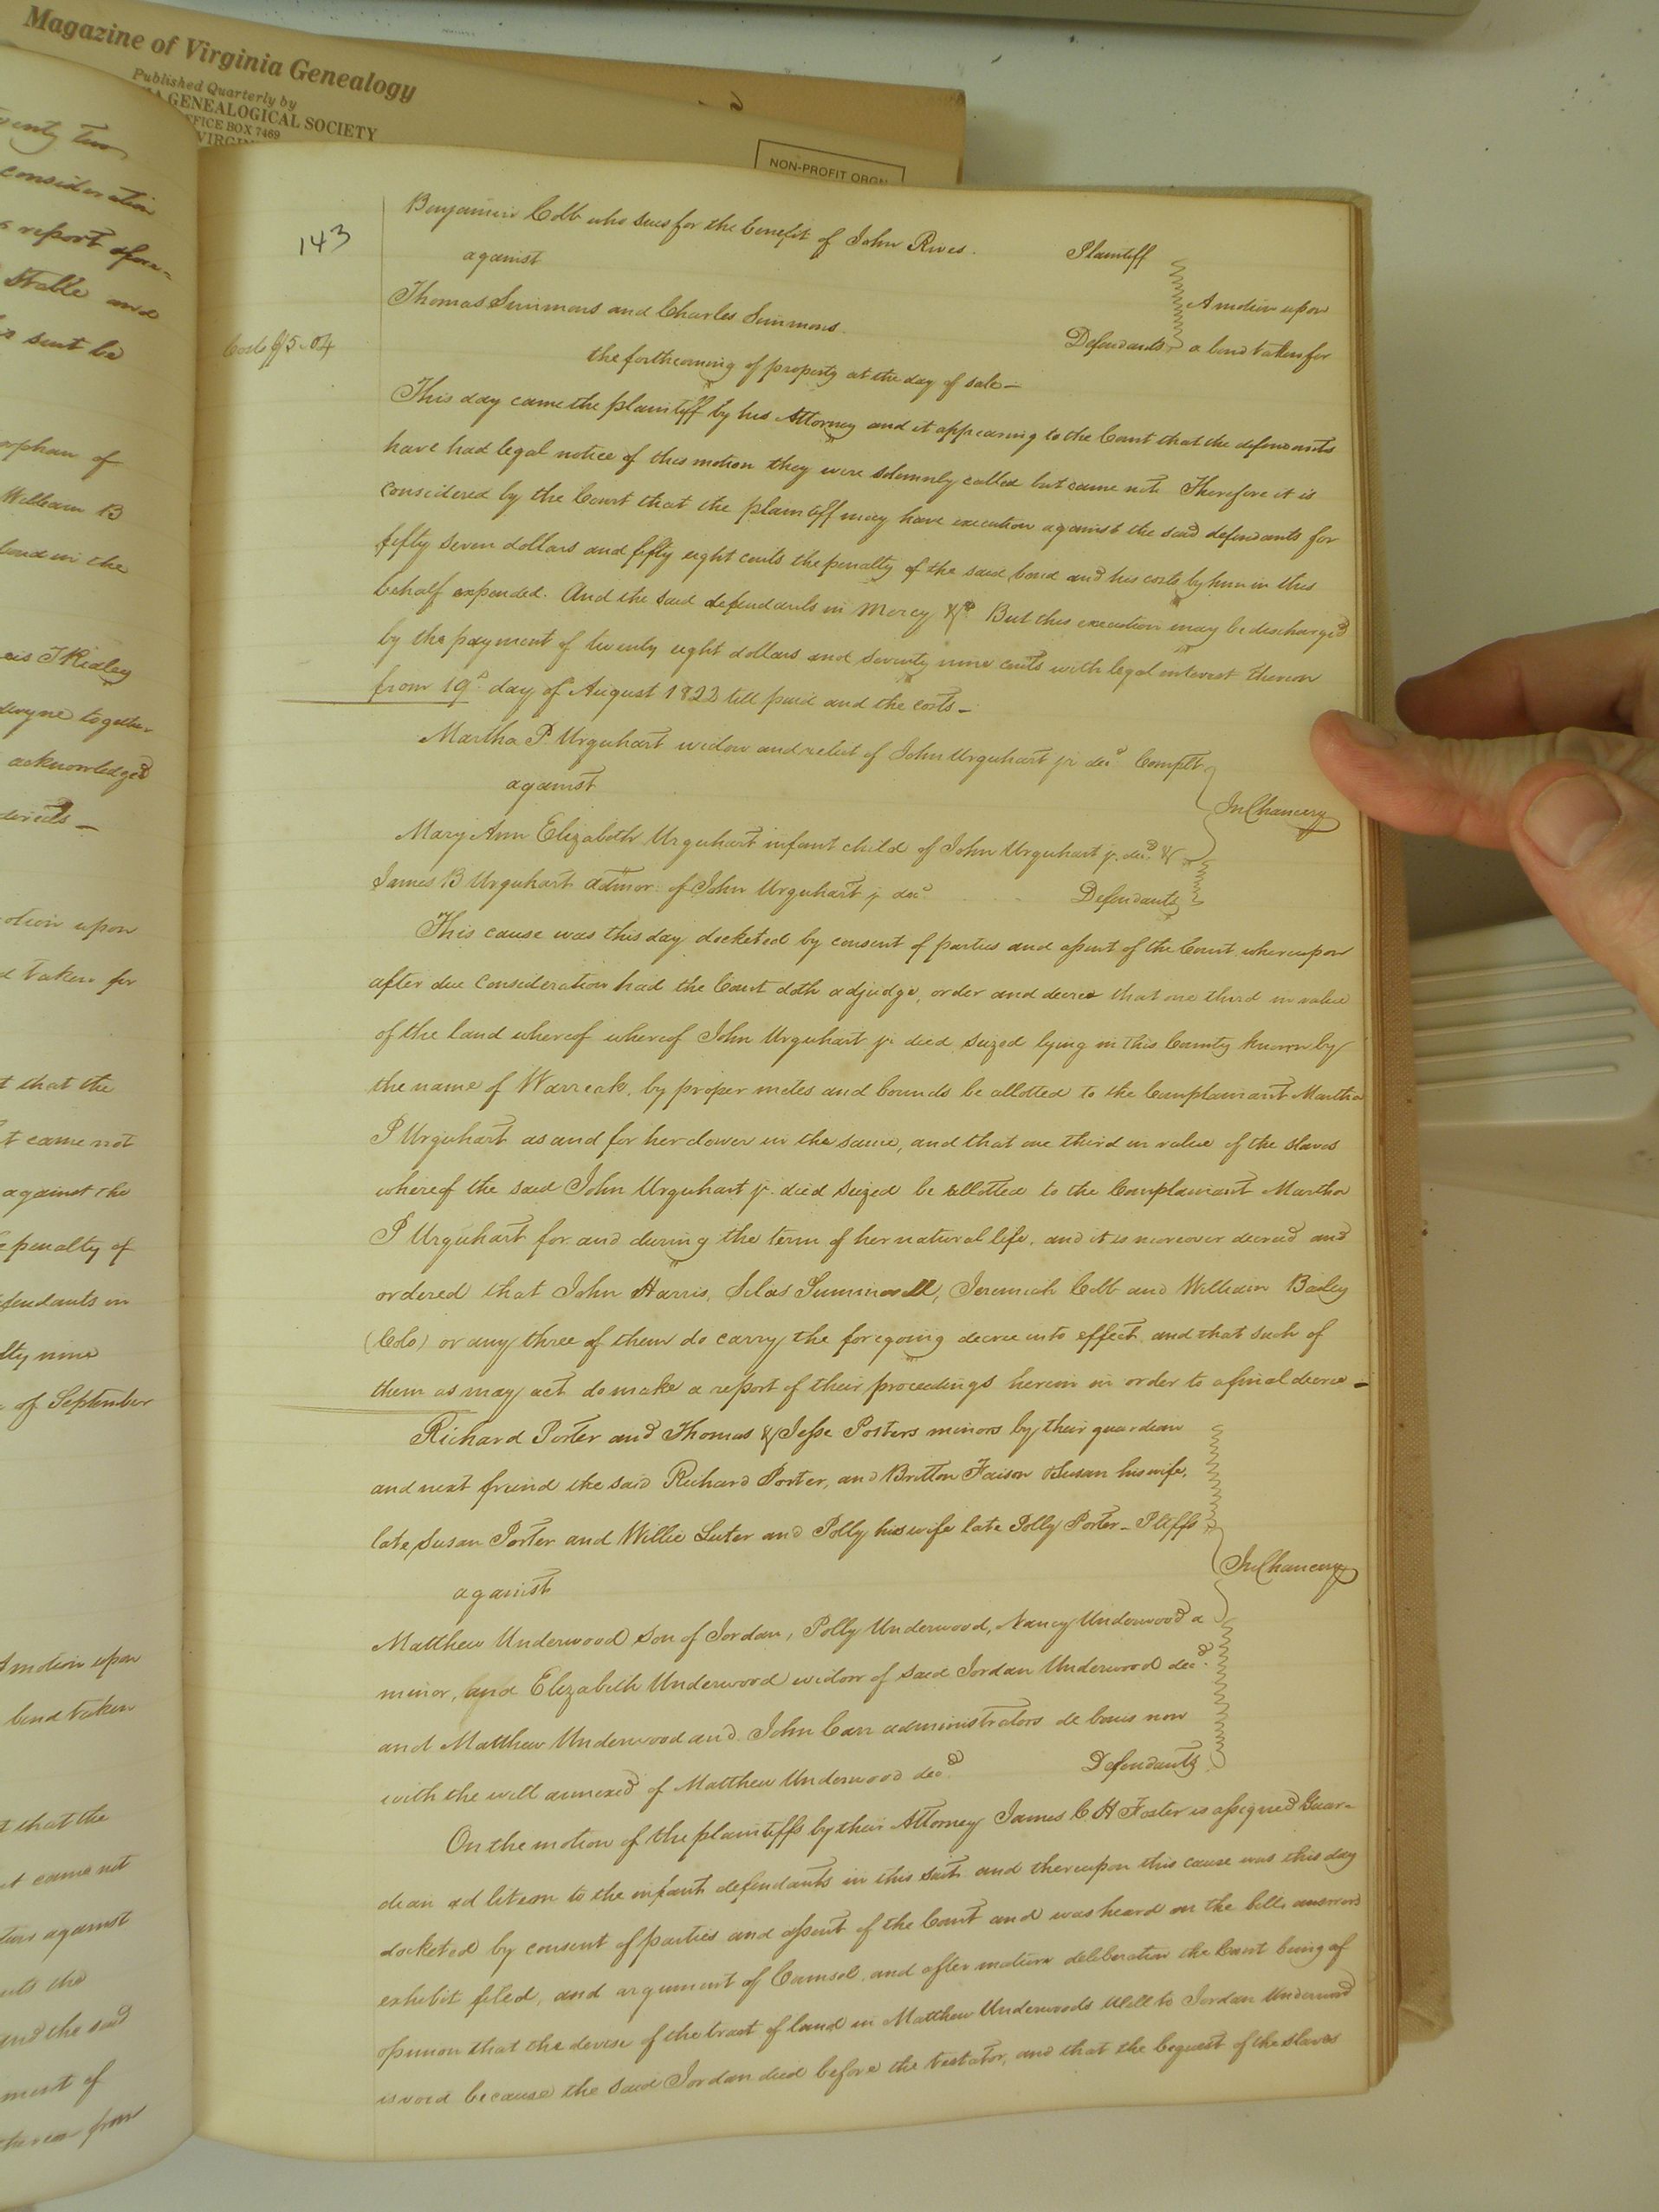 Magazine of Virginia Genealogy
Published Quarterly by
GENEALOGICAL SOCIETY
OFFICE BOX 7469
VIRGIN
NON-PROFIT ORGN
enty two
consideration
report afore-
Stable and
sent be
orphan of
William B
T Ridley
together
acknowledged
otion upon
taken for
t that the
t came not
against the
penalty of
fendants in
nine
of September
motion upon
bond taken
t that the
came not
against
the
and the said
ment of
thereon from
143
Costs $5.04
Benjamin Cobb who sues for the benefit of John Rives. Plaintiff
against
A motion upon
Thomas Simmons and Charles Simmons. Defendants a bond taken for
the forthcoming of property at the day of sale—
This day came the plaintiff by his Attorney and it appearing to the Court that the defendants
have had legal notice of this motion they were solemnly called but came not Therefore it is
considered by the Court that the plaintiff may have execution against the said defendants for
fifty seven dollars and fifty eight cents the penalty of the said bond and his costs by him in this
behalf expended. And the said defendants in Mercy &c But this execution may be discharged
by the payment of twenty eight dollars and seventy nine cents with legal interest thereon
from 19th day of August 1823 till paid and the costs—
Martha P Urquhart widow and relict of John Urquhart jr decd Complt
against
In Chancery
Mary Ann Elizabeth Urquhart infant child of John Urquhart jr. decd. &
James B Urquhart admor of John Urquhart jr decd Defendants
This cause was this day docketed by consent of parties and assent of the Court whereupon
after due Consideration had the Court doth adjudge, order and decree that one third in value
of the land whereof whereof John Urquhart jr died seized lying in this County known by
the name of Warreck, by proper metes and bounds be allotted to the Complainant Martha
P Urquhart as and for her dower in the same, and that one third in value of the slaves
whereof the said John Urquhart jr. died seized be allotted to the Complainant Martha
P Urquhart for and during the term of her natural life, and it is moreover decreed and
ordered that John Harris, Silas Summerell, Jeremiah Cobb and William Bailey
(Colo) or any three of them do carry the foregoing decree into effect and that such of
them as may act do make a report of their proceedings herein in order to a final decree—
Richard Porter and Thomas & Jesse Porters minors by their guardian
and next freind the said Richard Porter, and Britton Faison & Susan his wife,
late Susan Porter and Willie Luter and Polly his wife late Polly Porter— Pltffs
In Chancery
against
Matthew Underwood son of Jordan, Polly Underwood, Nancy Underwood a
minor, and Elizabeth Underwood widow of said Jordan Underwood decd.
and Matthew Underwood and John Carr administrators de bonis non
with the will annexed of Matthew Underwood decd Defendants
On the motion of the plaintiffs by their Attorney James C. H Foster is assigned Guar-
dian ad litem to the infant defendants in this suit and thereupon this cause was this day
docketed by consent of parties and assent of the Court and was heard on the bill, answers
exhibit filed, and argument of Counsel, and after mature deliberation the Court being of
opinion that the devise of the tract of land in Matthew Underwoods Will to Jordan Underwood
is void because the said Jordan died before the testator, and that the bequest of the slaves